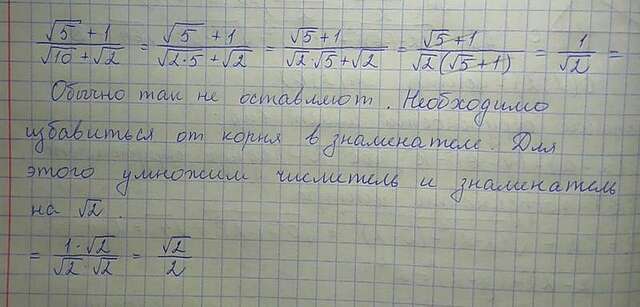 (√5 + 1)/(√10 + √2) = (√5 + 1)/(√2·5 + √2) = (√5 + 1)/(√2·√5 + √2) = (√5 + 1)/(√2(√5 + 1)) = 1/√2 =
Обычно так не оставляют. Необходимо
избавиться от корня в знаменателе. Для
этого умножим числитель и знаменатель
на √2.
= (1·√2)/(√2·√2) = √2/2